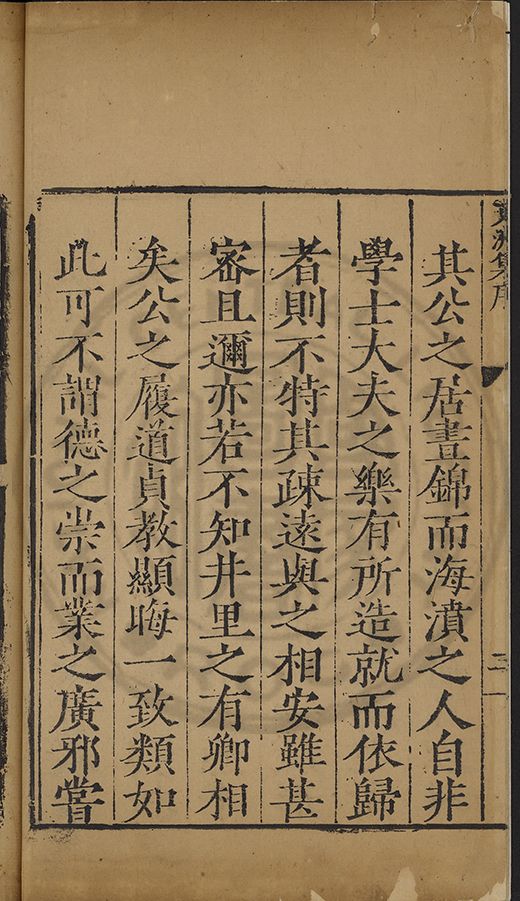 集序
其公之居晝錦而海濆之人自非
學士大夫之樂有所造就而依歸
者則不特其疎遠與之相安雖甚
密且邇亦若不知井里之有卿相
矣公之履道貞教顯晦一致類如
此可不謂德之崇而業之廣邪嘗